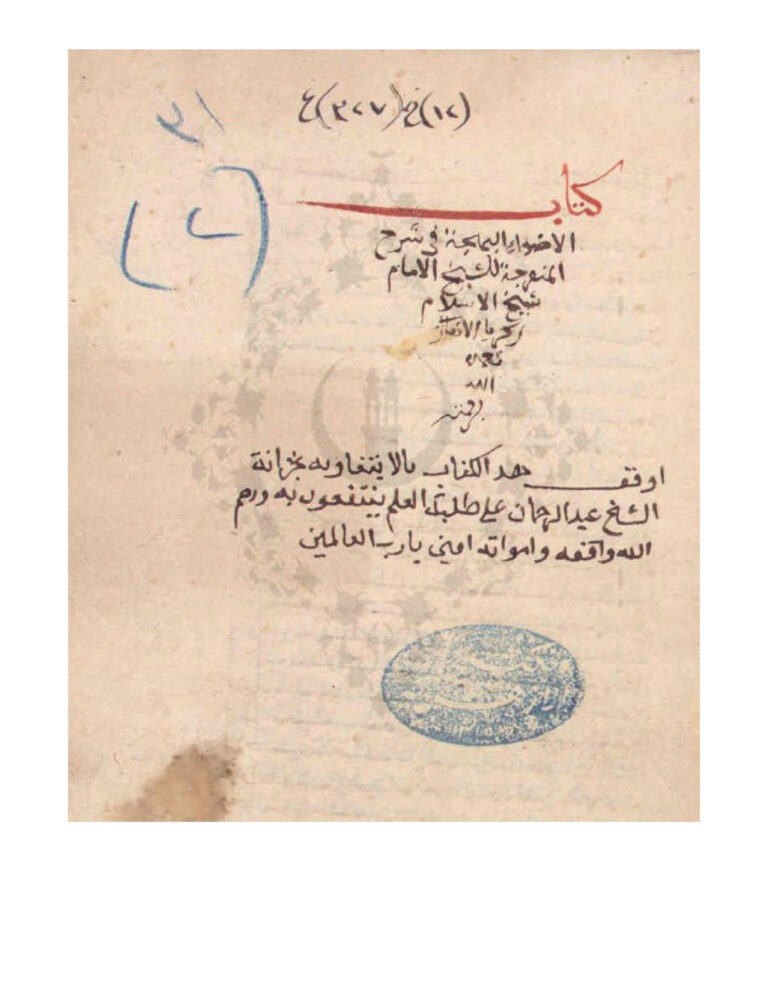 (١٢) خ (٣٢٧) ع
٣١
(٢)
كتاب
الاضواء البهجة في شرح
المنفرجة للشيخ الامام
شيخ الاسلام
زكريا الانصاري
تغمده
الله
برحمته
اوقف هدا الكتاب بالا ينتفاو به بخزانة
الشيخ عبدالرحمان على طلبة العلم ينتفعون به ورحم
الله واقفه وامواته امين يارب العالمين